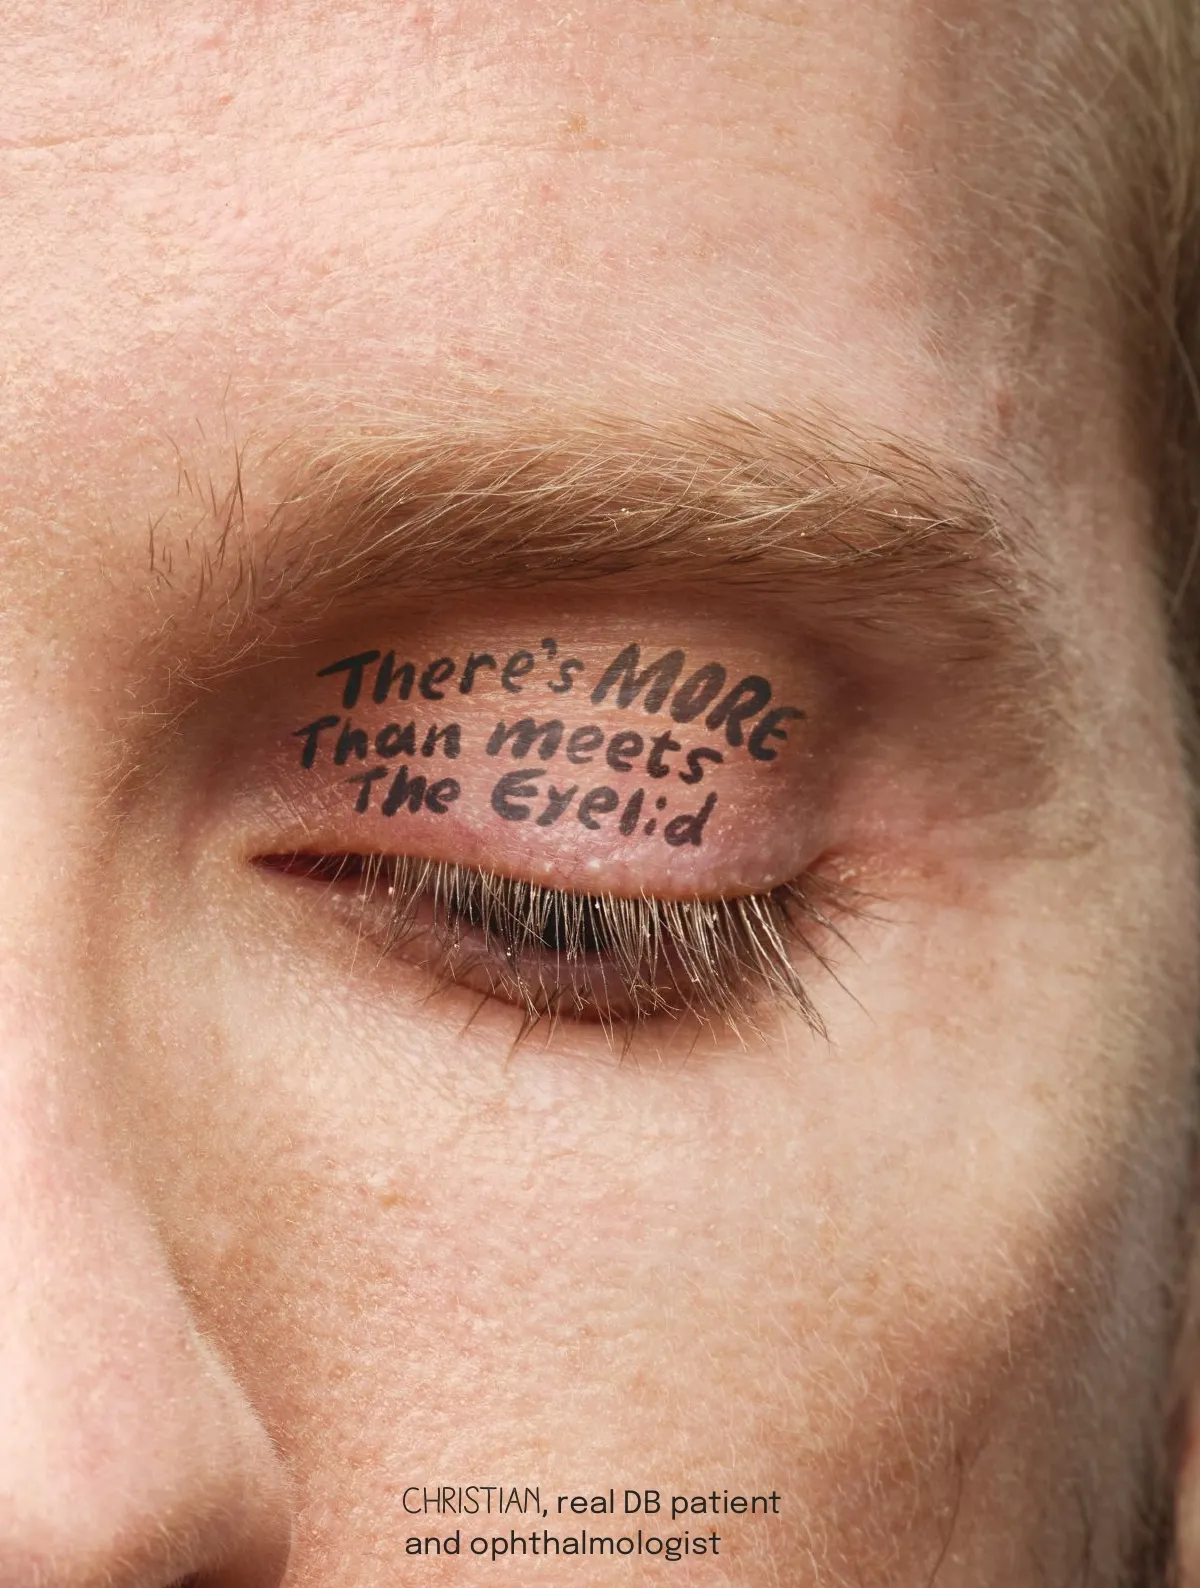 There's MORE
Than meets
The Eyelid
CHRISTIAN, real DB patient
and ophthalmologist